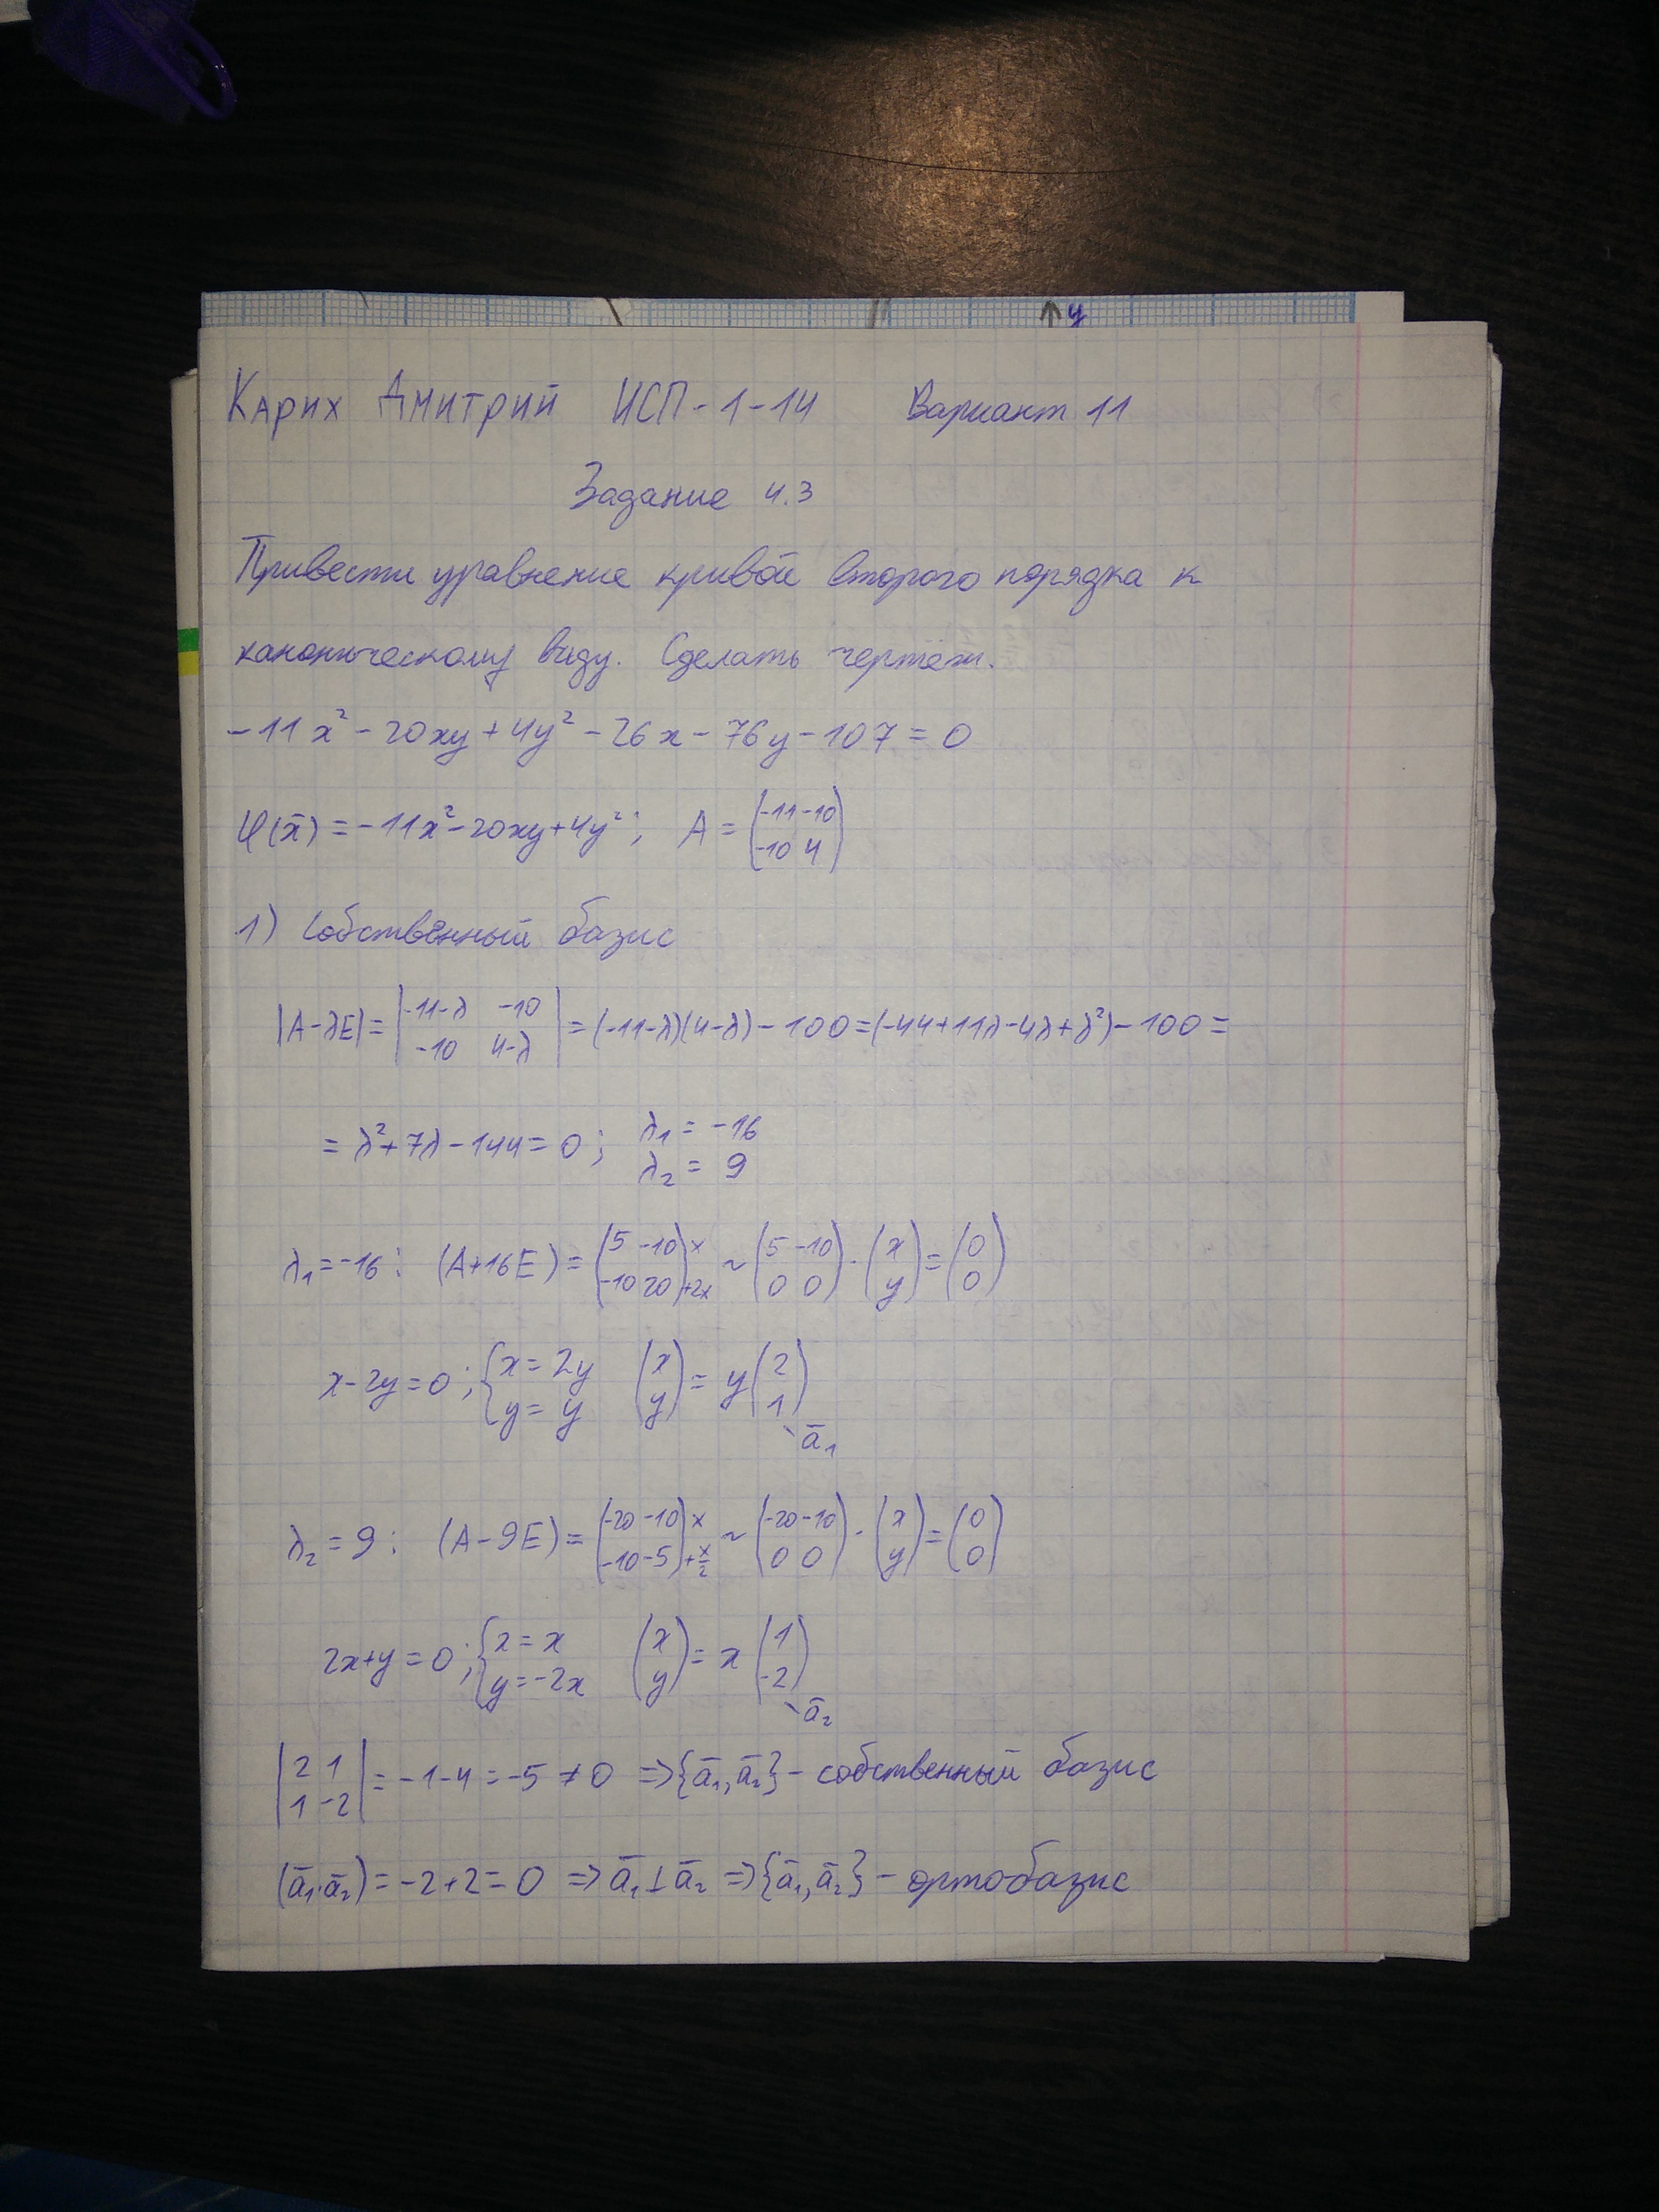 y
Карих Дмитрий ИСП-1-14 Вариант 11
Задание 4.3
Привести уравнение кривой второго порядка к
каноническому виду. Сделать чертёж.
-11x² - 20xy + 4y² - 26x - 76y - 107 = 0
φ(x̄) = -11x² - 20xy + 4y²; A = (-11 -10; -10 4)
1) Собственный базис
|A-λE| = |-11-λ -10; -10 4-λ| = (-11-λ)(4-λ) - 100 = (-44+11λ-4λ+λ²) - 100 =
= λ² + 7λ - 144 = 0; λ₁ = -16 λ₂ = 9
λ₁ = -16: (A+16E) = (5 -10; -10 20) x +2x ~ (5 -10; 0 0) · (x; y) = (0; 0)
x-2y=0; {x = 2y y = y (x; y) = y(2; 1) ā₁
λ₂ = 9: (A-9E) = (-20 -10; -10 -5) x +x/2 ~ (-20 -10; 0 0) · (x; y) = (0; 0)
2x+y=0; {x = x y = -2x (x; y) = x(1; -2) ā₂
|2 1; 1 -2| = -1-4 = -5 ≠ 0 ⇒ {ā₁, ā₂} - собственный базис
(ā₁·ā₂) = -2+2 = 0 ⇒ ā₁ ⊥ ā₂ ⇒ {ā₁, ā₂} - ортобазис